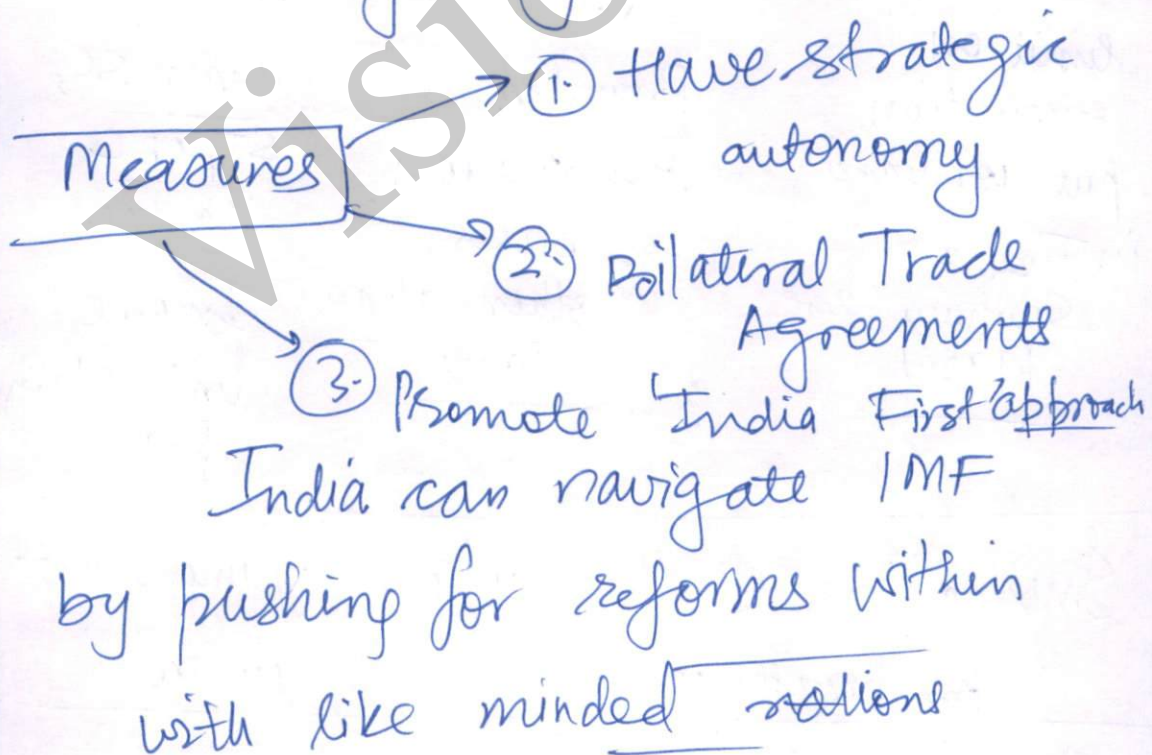 Visi
Measures
1. Have strategic
autonomy
2. Bilateral Trade
Agreements
3. Promote 'India First' approach
India can navigate IMF
by pushing for reforms within
with like minded nations